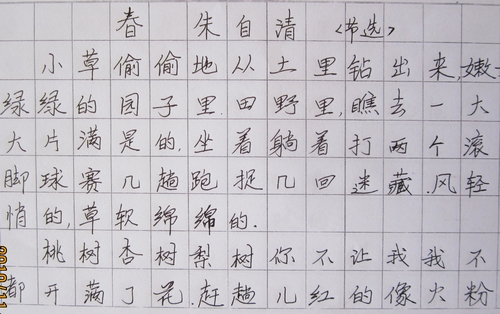 春 朱自清 <节选>
小草偷偷地从土里钻出来,嫩
绿绿的园子里.田野里,瞧去一大
大片满是的.坐着躺着打两个滚
脚球赛几趟跑捉几回迷藏.风轻
悄的,草软绵绵的.
桃树杏树梨树你不让我我不
都开满了花.赶趟儿红的像火粉